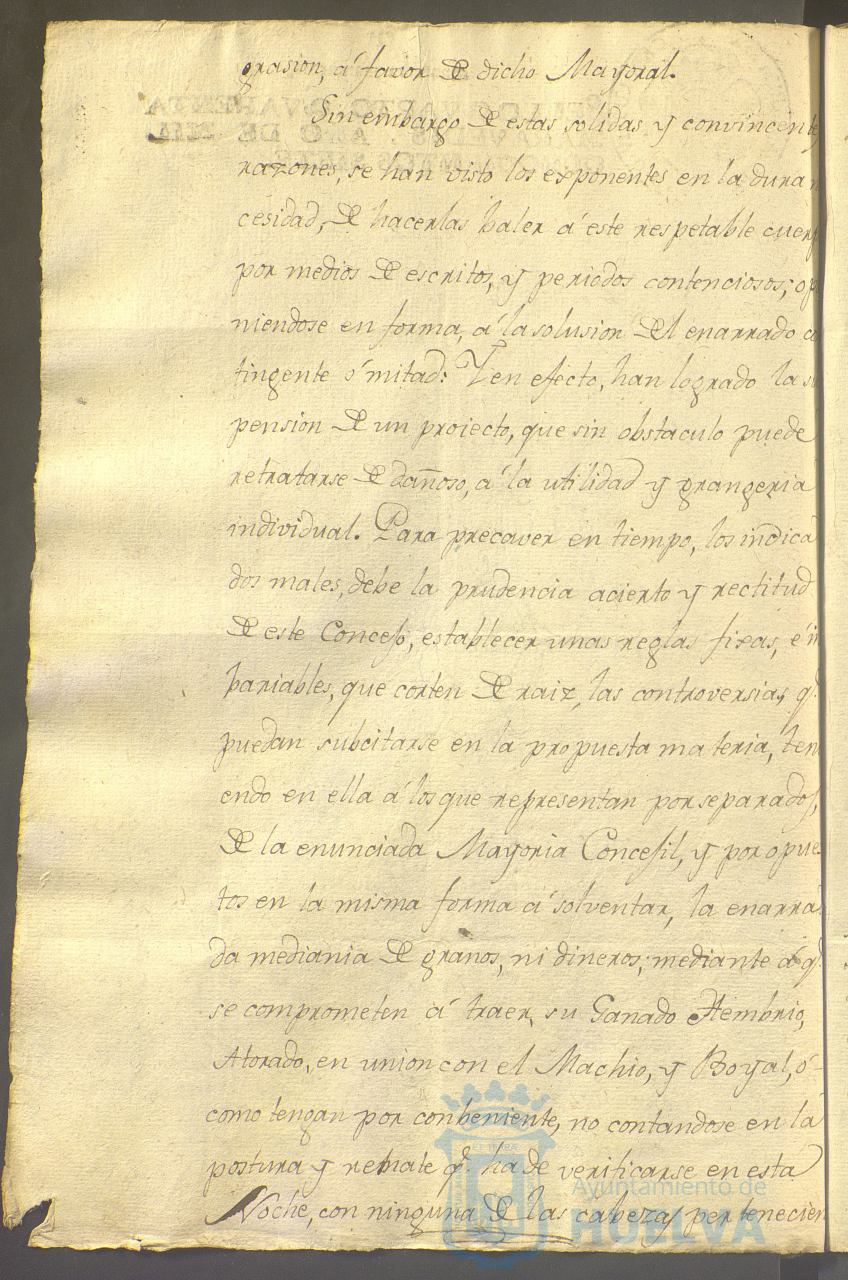 grasion, á favor de dicho Mayoral.
Sin embargo de estas solidas y convincente
razones, se han visto los exponentes en la dura n
cesidad, de hacerlas baler á este respetable cuerp
por medios de escritos, y periodos contenciosos; op
niendose en forma, á la solusion del enarrado co
tingente ó mitad: Y en efecto, han logrado la su
pension de un proiecto, que sin obstaculo puede
retratarse de dañoso, a la utilidad y grangeria
individual. Para precaver en tiempo, los indica
dos males, debe la prudencia acierto y rectitud
de este Concejo, establecer unas reglas fixas, é in
bariables, que corten de raiz, las controversias q.e
puedan subcitarse en la propuesta materia, ten
endo en ella á los que representan por separados,
de la enunciada Mayoria Concejil, y por opues
tos en la misma forma á solventar, la enarra
da mediania de granos, ni dineros; mediante á q.e
se comprometen á traer, su Ganado Hembrio,
Atorado, en union con el Machio, y Boyal, ó
como tengan por conbeniente, no contandose en la
postura y remate q.e ha de verificarse en esta
Noche, con ninguna de las cabezas pertenecien
Ayuntamiento de
HUELVA